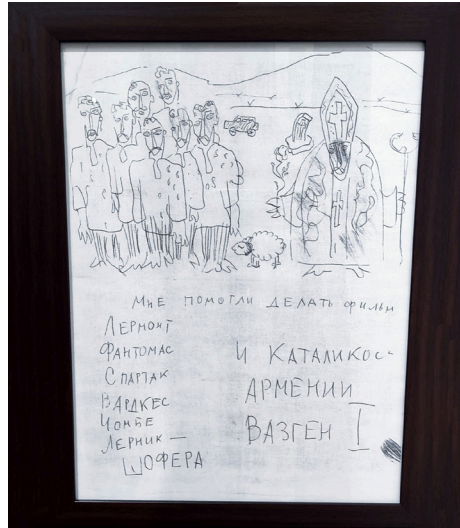 Мне помогли делать фильм
Лермонт
Фантомас
Спартак
Вардкес
Чомбе
Лерник —
шофера
и Каталикос-
Армении
Вазген I